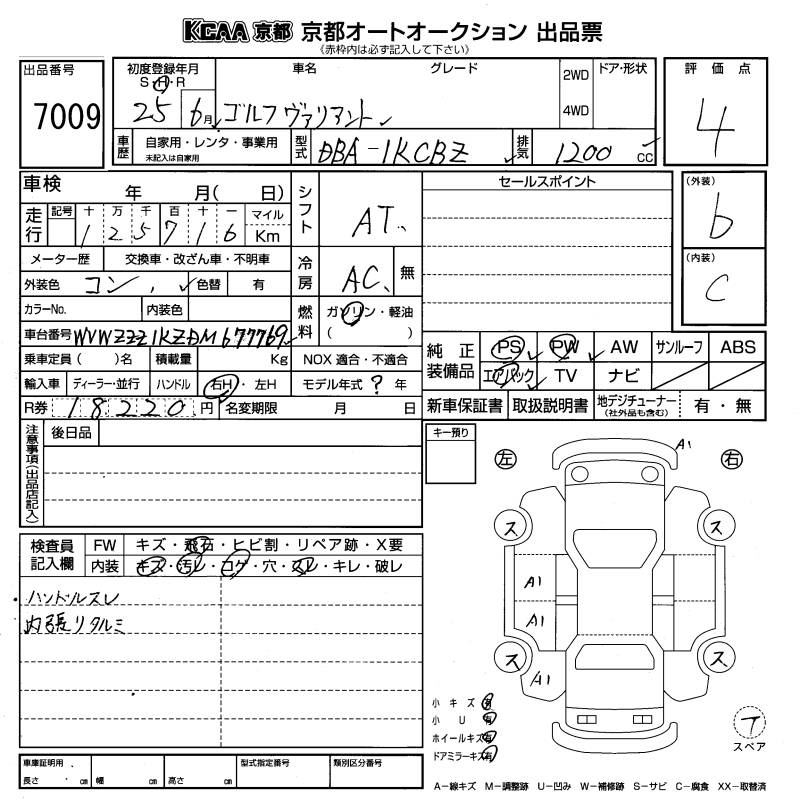 KCAA 京都 京都オートオークション 出品票
(赤枠内は必ず記入して下さい)
出品番号 7009
初度登録年月 S・H・R 25 6月
車名 グレード ゴルフヴァリアント
2WD
4WD
ドア・形状
評価点 4
車歴 自家用・レンタ・事業用
未記入は自家用
型式 DBA-1KCBZ
排気 1200 cc
車検 年 月( 日)
走行 記号 十 万 千 百 十 一 マイル
1 2 5 7 1 6 Km
メーター歴 交換車・改ざん車・不明車
外装色 コン 色替 有
カラーNo. 内装色
車台番号 WVWZZZ1KZDM677769
乗車定員( )名 積載量 Kg NOX 適合・不適合
輸入車 ディーラー・並行 ハンドル 右H・左H モデル年式 ? 年
R券 18220 円 名変期限 月 日
シフト AT
冷房 AC 無
燃料 ガソリン・軽油
( )
セールスポイント
(外装) b
(内装) C
純正装備品 PS PW AW サンルーフ ABS
エアバック TV ナビ
新車保証書 取扱説明書 地デジチューナー (社外品も含む) 有・無
注意事項(出品店記入) 後日品
キー預り
左 右
A1
ス ス
A1
A1
ス ス
A1
検査員記入欄 FW キズ・飛石・ヒビ割・リペア跡・X要
内装 キズ・汚レ・コゲ・穴・スレ・キレ・破レ
ハンドルスレ
内張リタルミ
小キズ 有
小U 有
ホイールキズ 有
ドアミラーキズ 有
T
スペア
車庫証明用 長さ cm 幅 cm 高さ cm 型式指定番号 類別区分番号
A−線キズ M−調整跡 U−凹み W−補修跡 S−サビ C−腐食 XX−取替済